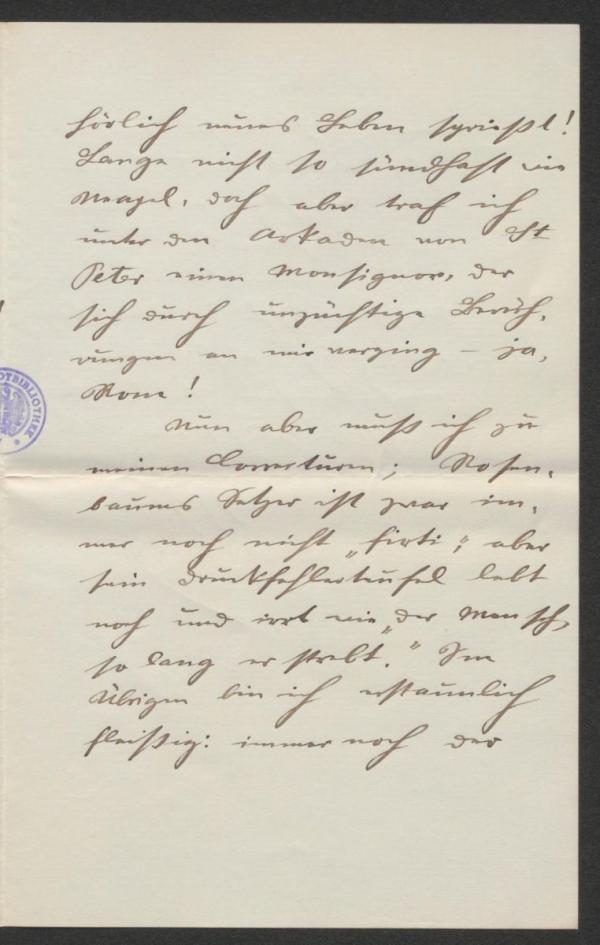 hörlich neues Leben sprießt!
Lange nicht so sündhaft wie
Neapel, doch aber traf ich
unter den Arkaden von St
Peter einen Monsignor, der
sich durch unzüchtige Berüh-
rungen an mir verging – ja,
Rom!
Nun aber muß ich zu
meinen Correcturen; Rosen-
baums Setzer ist zwar im-
mer noch nicht „firti“; aber
sein Druckfehlerteufel lebt
noch und irrt wie „der Mensch
so lang er strebt.“ Im
Übrigen bin ich erstaunlich
fleißig: immer noch der